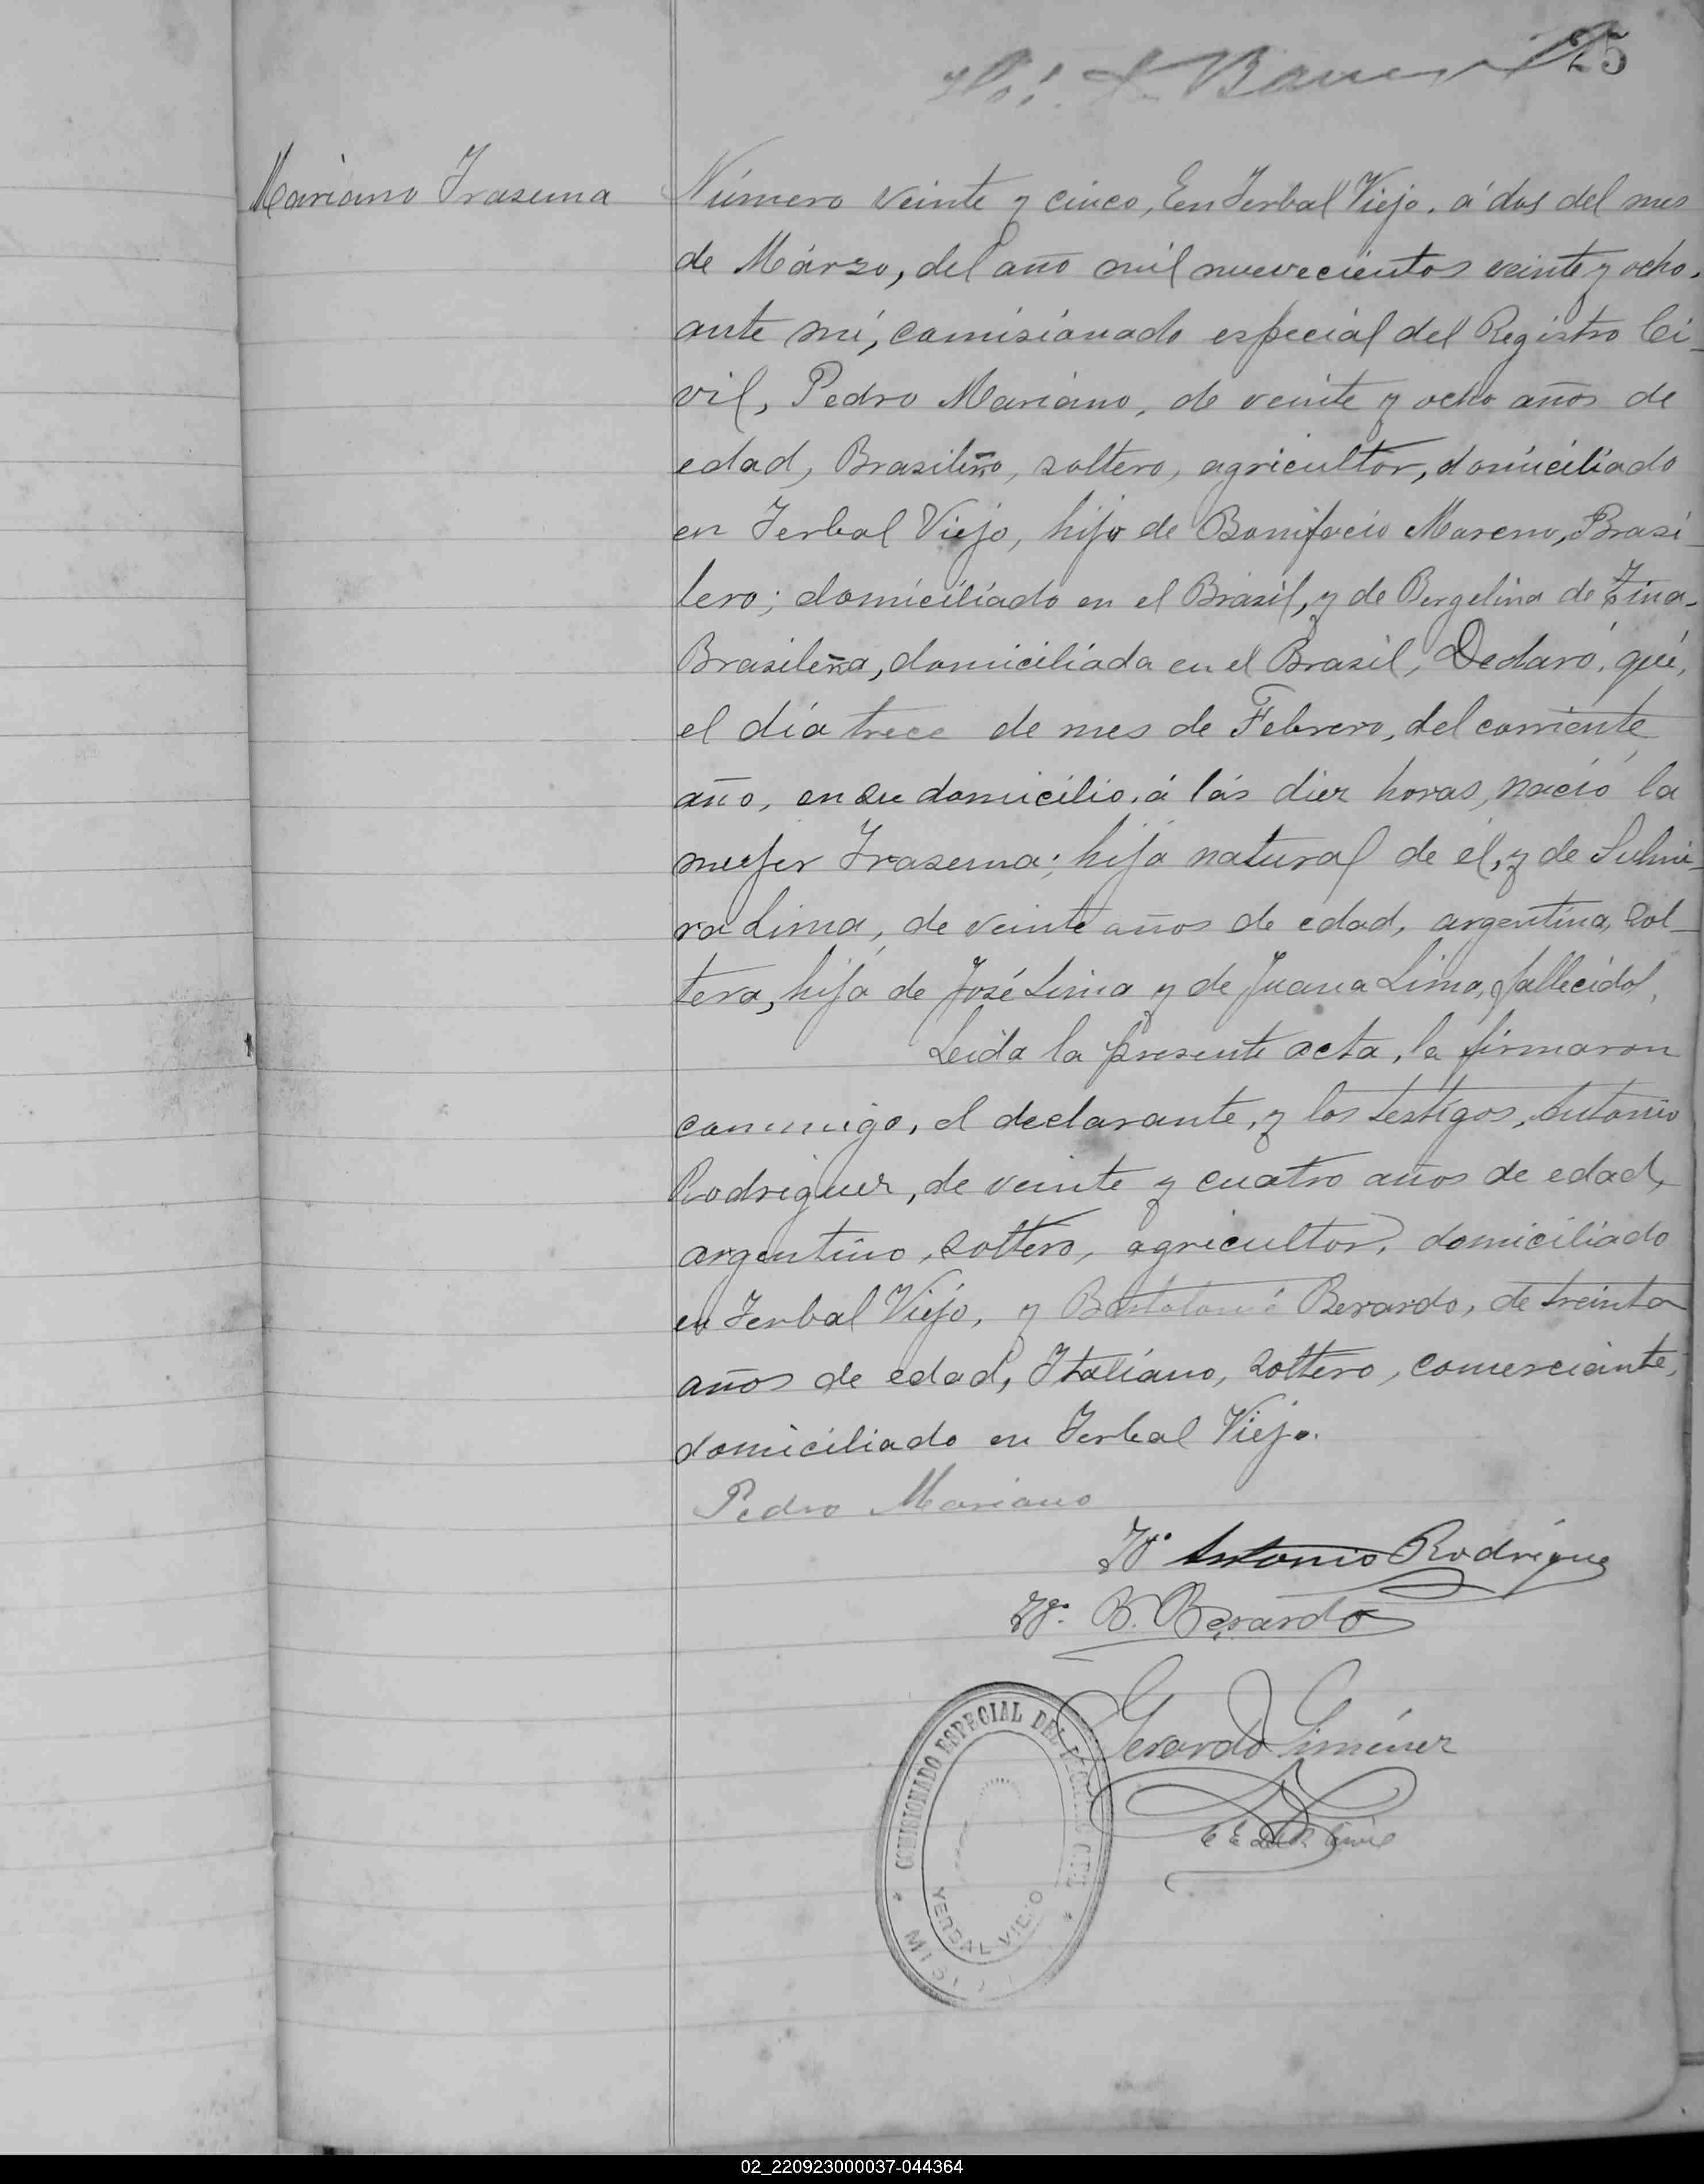 25
Mariano Irasema
Número veinte y cinco, En Yerbal Viejo, á dos del mes
de Márzo, del año mil nuevecientos veinte y ocho,
ante mí, comisionado especial del Registro Ci-
vil, Pedro Mariano, de veinte y ocho años de
edad, Brasileño, soltero, agricultor, domiciliado
en Yerbal Viejo, hijo de Bonifacio Moreno, Brasi-
lero; domiciliado en el Brasil, y de Bergelina de
Brasileña, domiciliada en el Brasil, Declaró, qué,
el día trece de mes de Febrero, del corriente
año, en su domicilio, á lás diez horas, nació la
mujer Irasema; hija natural de él, y de Sulmi-
ra Lima, de veinte años de edad, argentina, sol-
tera, hija de José Lima y de Juana Lima, fallecidos,
Leida la presente acta, la firmaron
conmigo, el declarante, y los testigos, Antonio
Rodriguez, de veinte y cuatro años de edad,
argentino, soltero, agricultor, domiciliado
en Yerbal Viejo, y Bartolomé Berardo, de treinta
años de edad, Italiano, soltero, comerciante,
domiciliado en Yerbal Viejo.
Pedro Mariano
Tº Antonio Rodrigue
Tº. B. Berardo
Gerardo Giménez
C E del R. Civil
COMISIONADO ESPECIAL DEL REGISTRO CIVIL
YERBAL VIEJO
02_220923000037-044364